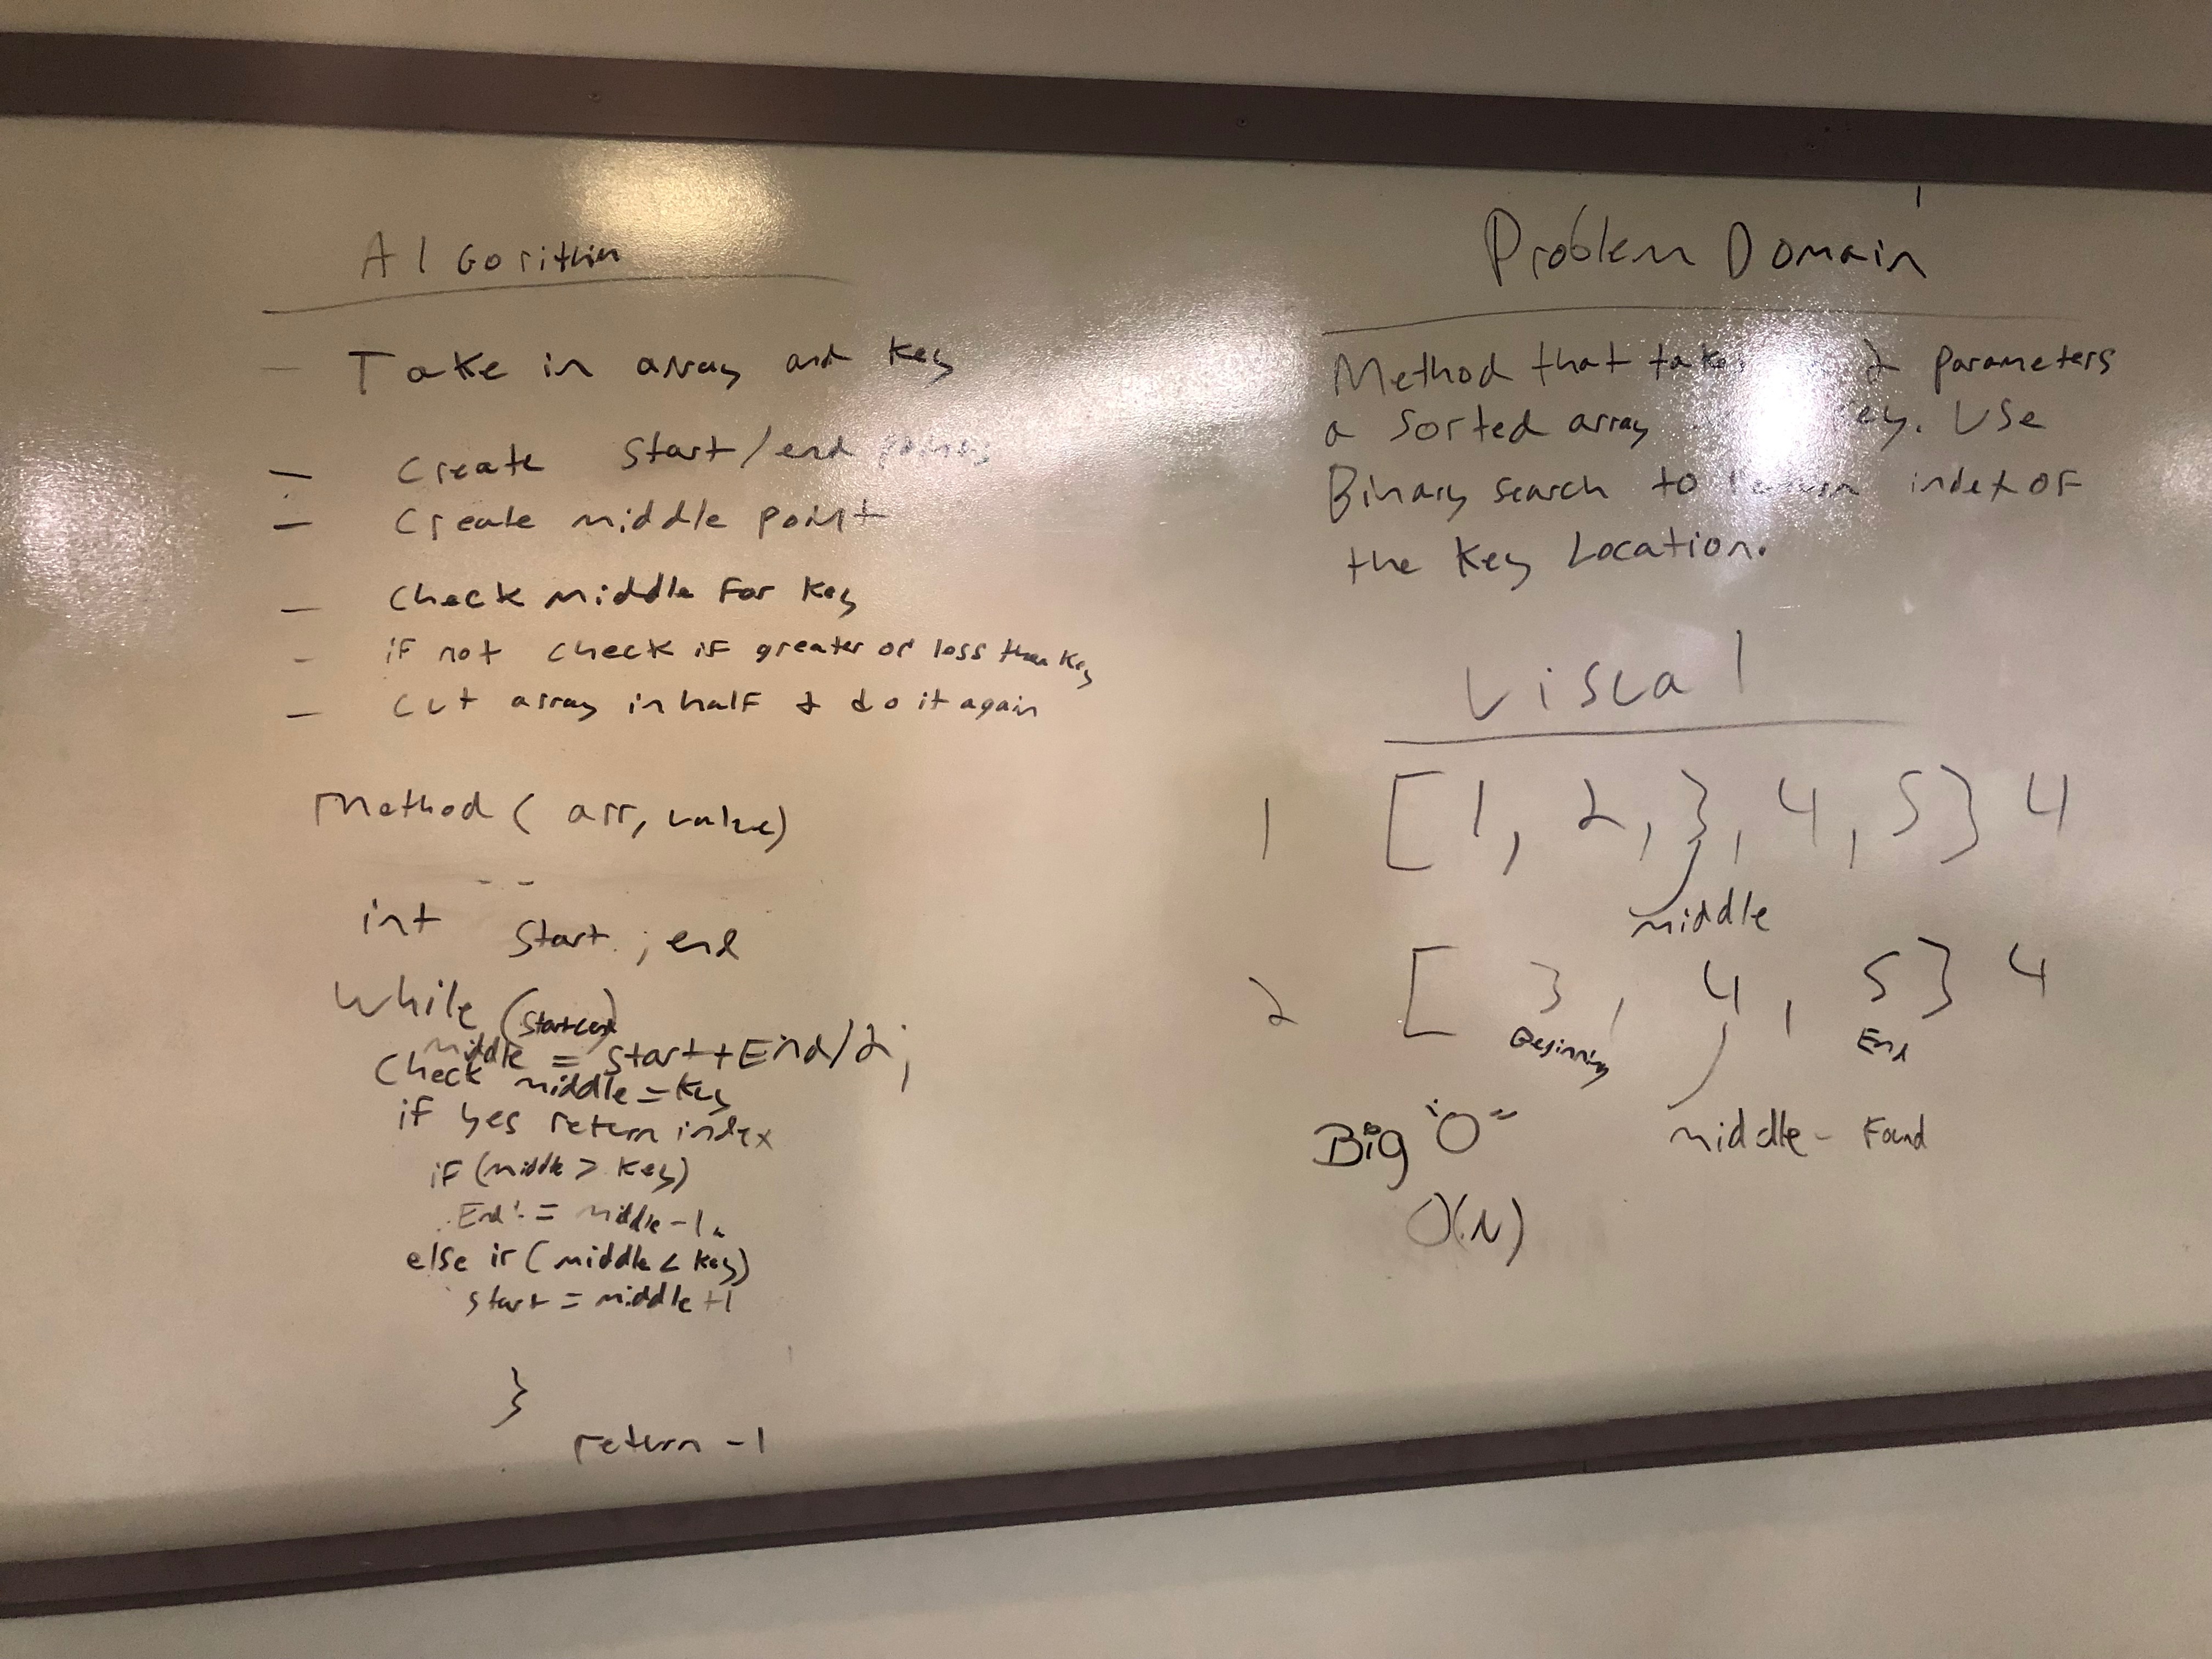 AlGorithm
- Take in array and key
- Create start/end points
- Create middle point
- Check middle for key
- if not check if greater or less than key
- cut array in half & do it again
Method ( arr, value)
int start ; end
While (start<end)
middle = start+End/2;
Check middle = key
if yes return index
if (middle > key)
End = middle -1
else if ( middle < key)
start = middle +1
}
return -1
Problem Domain
Method that takes 2 parameters
a sorted array. Use
Binary search to return index of
the key Location.
Visual
1 [1, 2, 3, 4, 5] 4
middle
2 [ 3, 4, 5] 4
Beginning End
middle - Found
Big "O"
O(N)